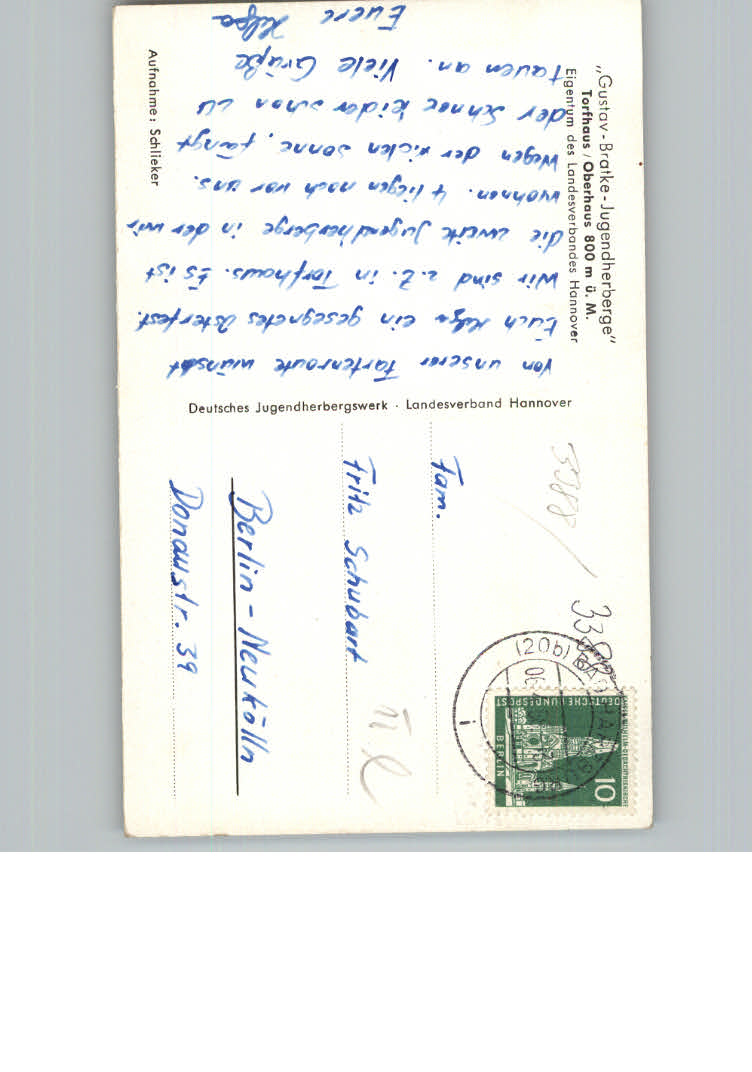 „Gustav-Bratke-Jugendherberge"
Torfhaus / Oberhaus 800 m ü. M.
Eigentum des Landesverbandes Hannover
Von unserer Fartenroute wünscht
Euch Helga ein gesegnetes Osterfest.
Wir sind z.Z. in Torfhaus. Es ist
die zweite Jugendherberge in der wir
wohnen. 4 liegen noch vor uns.
Wegen der vielen Sonne, fängt
der Schnee leider schon zu
tauen an. Viele Grüße
Euere Helga
Aufnahme: Schlieker
Deutsches Jugendherbergswerk · Landesverband Hannover
Fam.
Fritz Schubart
Berlin-Neukölln
Donaustr. 39
3388
(20b) BAD HARZBURG
06.4
i
10
DEUTSCHE BUNDESPOST
BERLIN